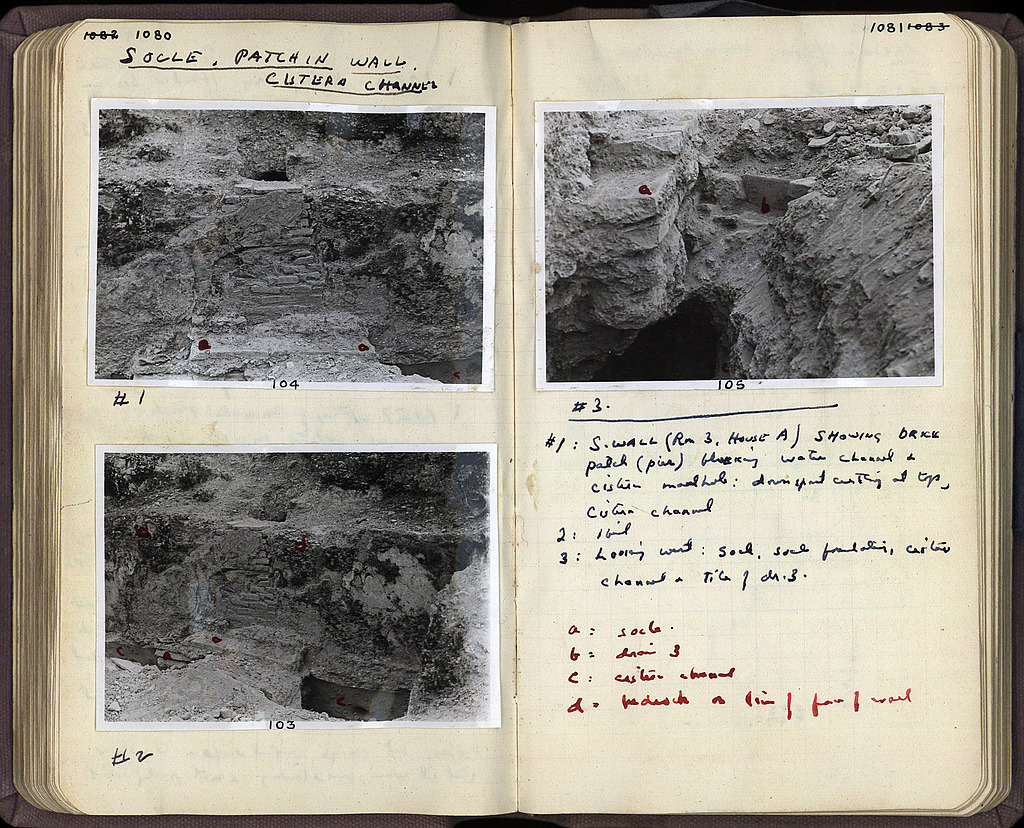 1082 1080
SOCLE. PATCH IN WALL.
CISTERN CHANNEL
a
a
c
104
#1
d
d
a
c
a
c
103
#2
1081 1083
a
b
c
105
#3.
#1: S. WALL (Rm 3, HOUSE A) SHOWING BRICK
patch (pier) blocking water channel &
cistern manhole: drainspout cutting at top,
Cistern channel
2: Ibid
3: Looking west: Socle, socle foundation, cistern
channel & Tile of dr. 3.
a: socle.
b: drain 3
c: cistern channel
d: bedrock on line of face of wall